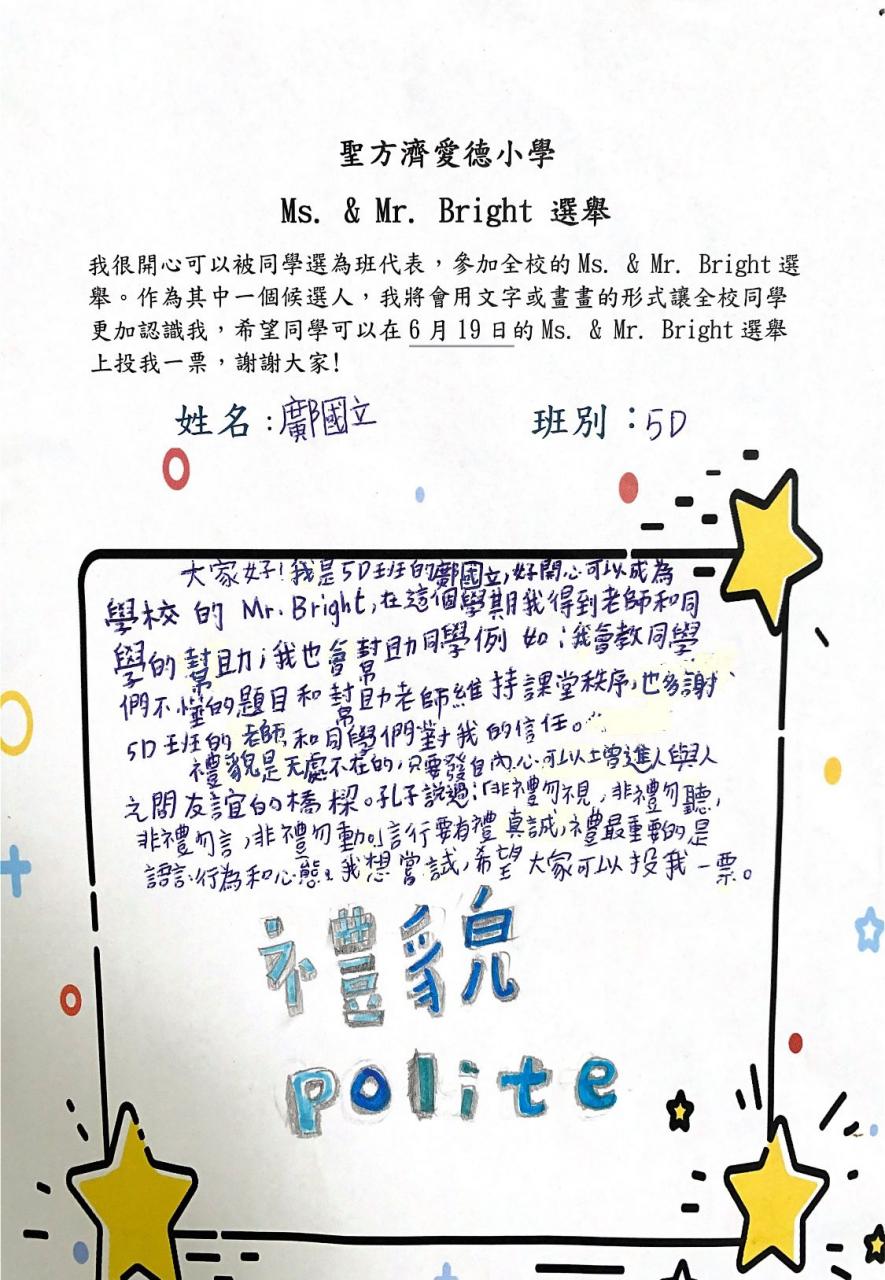 聖方濟愛德小學
Ms. & Mr. Bright 選舉
我很開心可以被同學選為班代表，參加全校的 Ms. & Mr. Bright 選
舉。作為其中一個候選人，我將會用文字或畫畫的形式讓全校同學
更加認識我，希望同學可以在 6 月 19 日的 Ms. & Mr. Bright 選舉
上投我一票，謝謝大家!
姓名：鄺國立 班別：5D
大家好!我是5D班的鄺國立,好開心可以成為
學校的 Mr. Bright,在這個學期我得到老師和同
學的幫助;我也會幫助同學例如:我會教同學
們不懂的題目和幫助老師維持課堂秩序,也多謝
5D班的老師和同學們對我的信任。
禮貌是无處不在的,只要發自內心可以增進人與人
之間友誼的橋樑。孔子說過:「非禮勿視,非禮勿聽,
非禮勿言,非禮勿動。」言行要有禮真誠,禮最重要的是
語言、行為和心態。我想嘗試,希望大家可以投我一票。
禮貌
polite